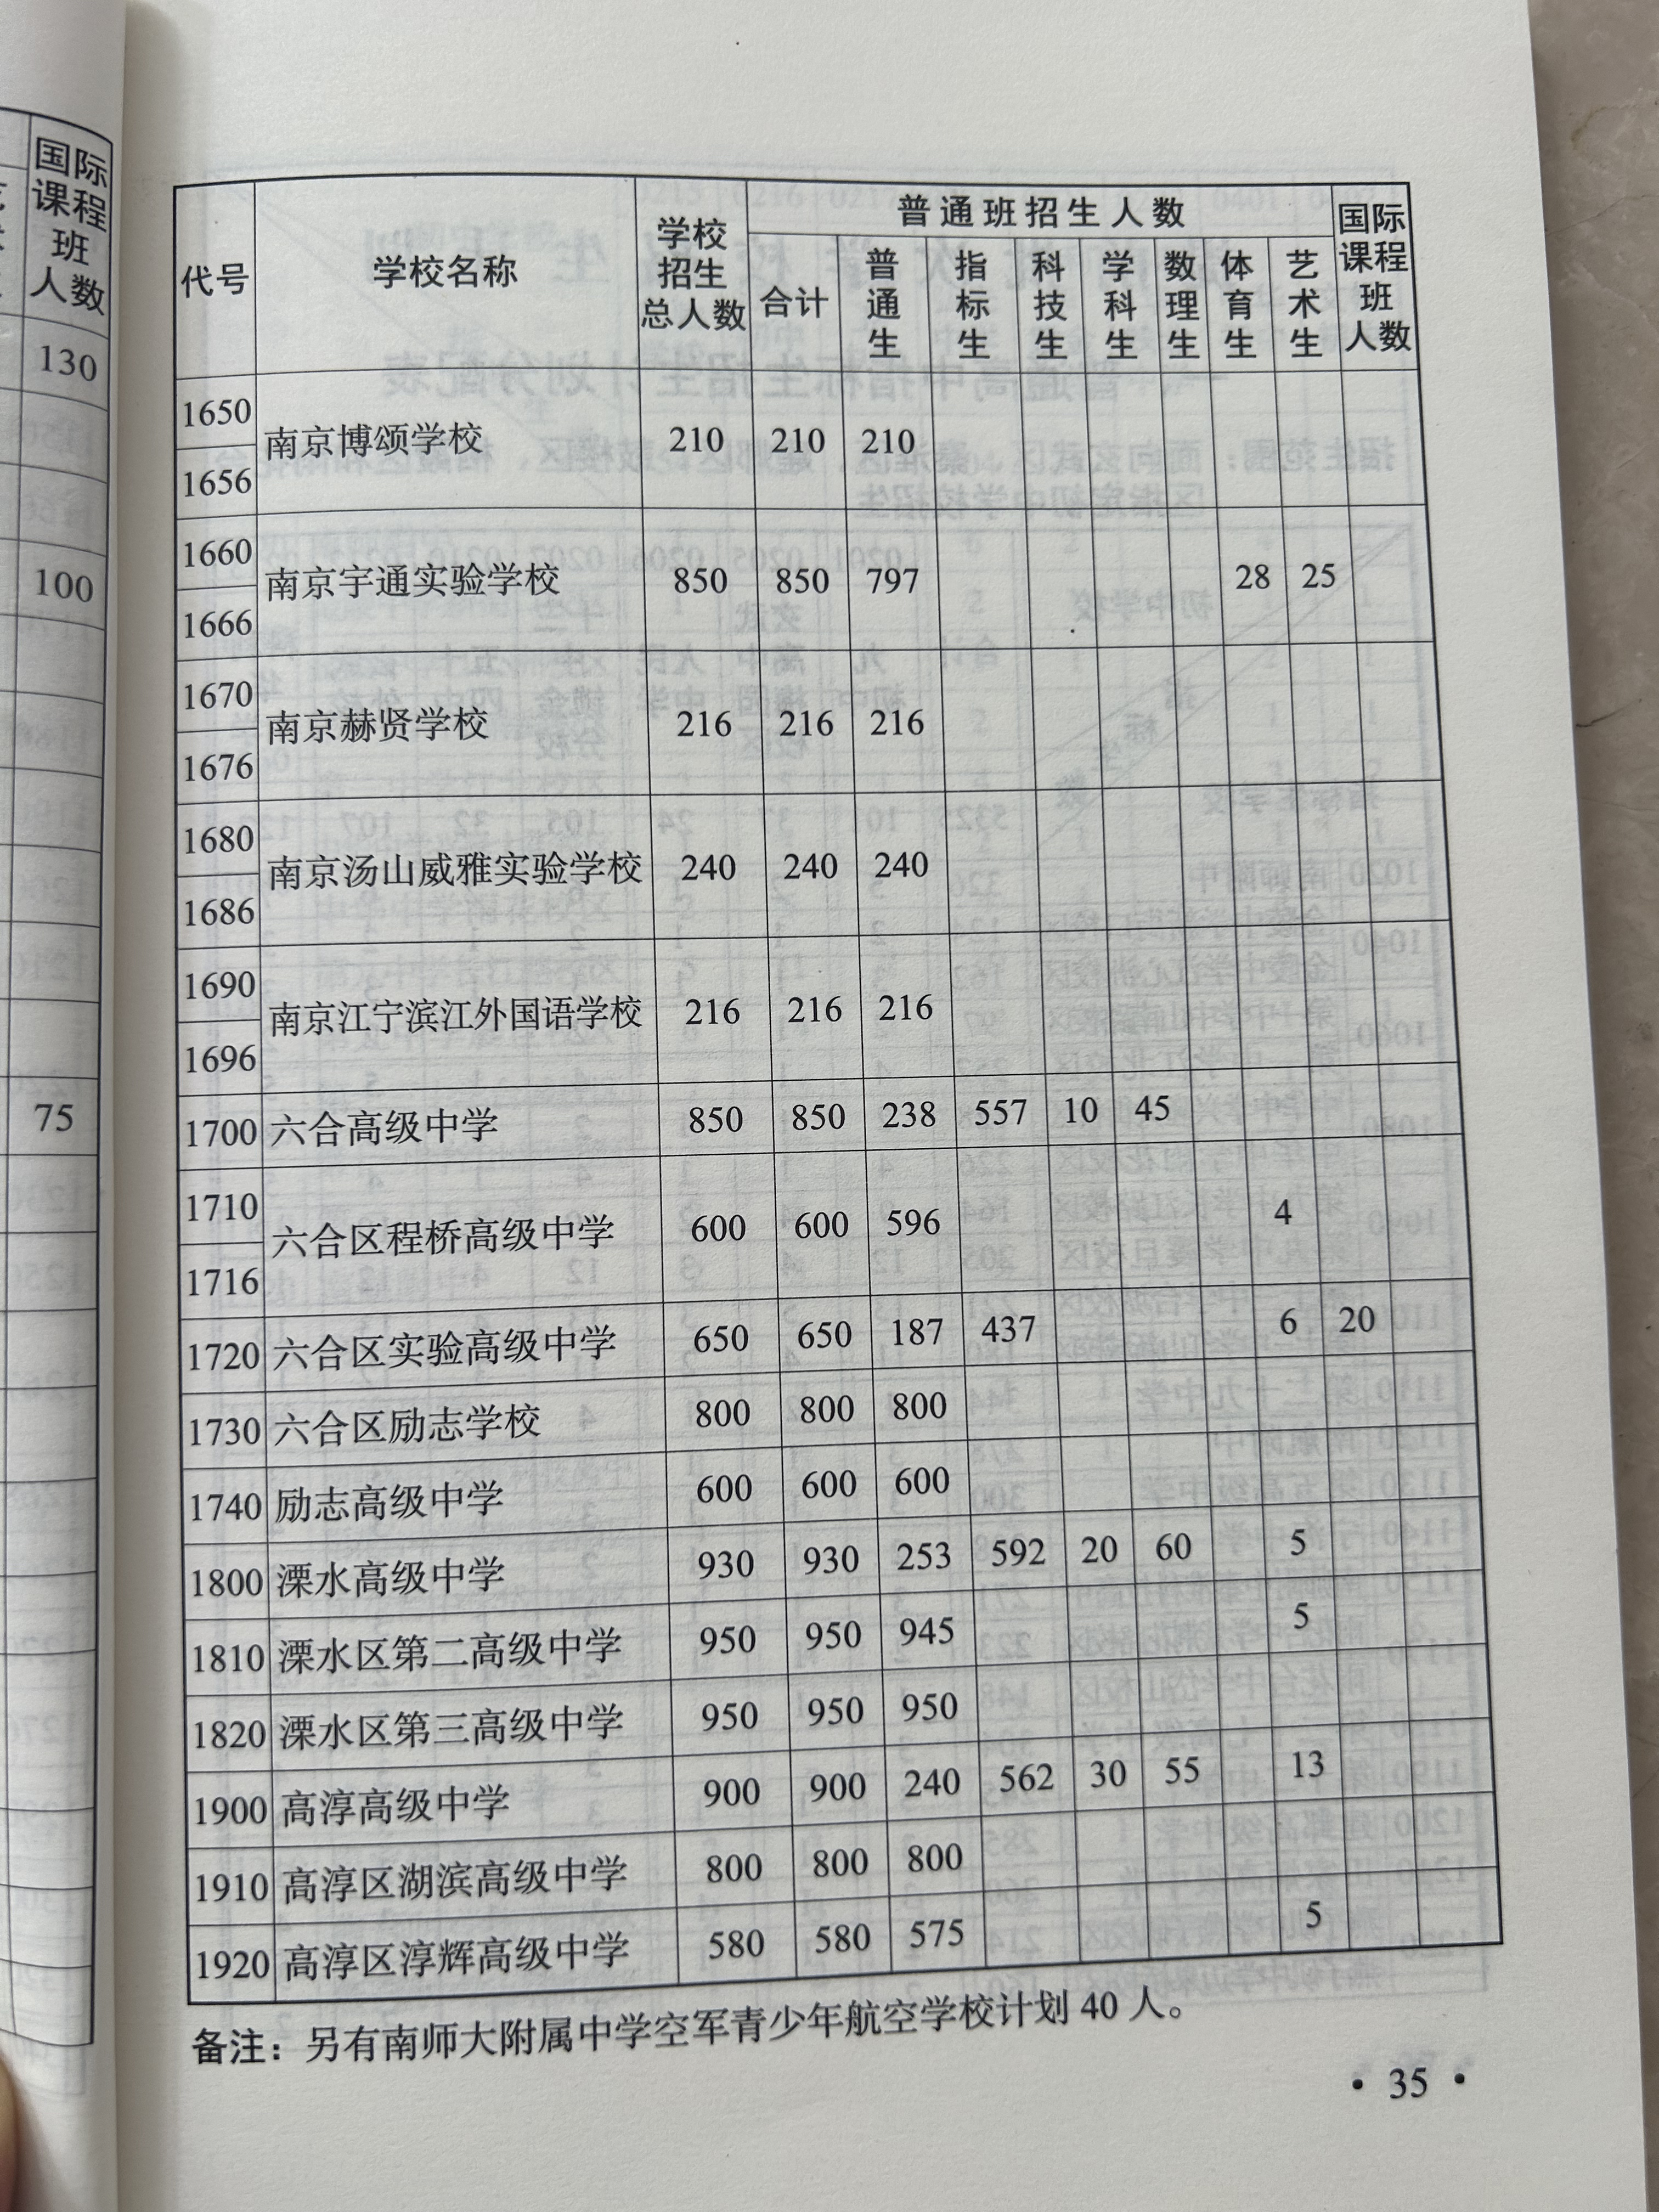 国际
课程
班
人数
130
100
75
代号 学校名称 学校招生总人数 普通班招生人数 国际课程班人数
合计 普通生 指标生 科技生 学科生 数理生 体育生 艺术生
1650 1656 南京博颂学校 210 210 210
1660 1666 南京宇通实验学校 850 850 797 28 25
1670 1676 南京赫贤学校 216 216 216
1680 1686 南京汤山威雅实验学校 240 240 240
1690 1696 南京江宁滨江外国语学校 216 216 216
1700 六合高级中学 850 850 238 557 10 45
1710 1716 六合区程桥高级中学 600 600 596 4
1720 六合区实验高级中学 650 650 187 437 6 20
1730 六合区励志学校 800 800 800
1740 励志高级中学 600 600 600
1800 溧水高级中学 930 930 253 592 20 60 5
1810 溧水区第二高级中学 950 950 945 5
1820 溧水区第三高级中学 950 950 950
1900 高淳高级中学 900 900 240 562 30 55 13
1910 高淳区湖滨高级中学 800 800 800
1920 高淳区淳辉高级中学 580 580 575 5
备注：另有南师大附属中学空军青少年航空学校计划 40 人。
• 35 •